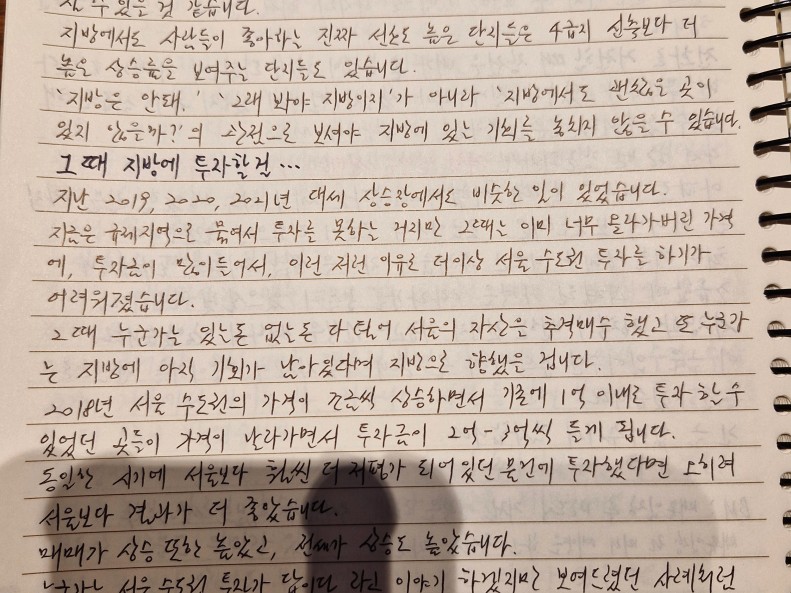 살 수 있을 것 같습니다.
지방에서도 사람들이 좋아하는 진짜 선호도 높은 단지들은 4급지 신축보다 더
높은 상승률을 보여주는 단지들도 있습니다.
'지방은 안돼.' '그래 봐야 지방이지'가 아니라 '지방에서도 괜찮은 곳이
있지 않을까?'의 관점으로 보셔야 지방에 있는 기회를 놓치지 않을 수 있습니다.
그 때 지방에 투자할 걸...
지난 2019, 2020, 2021년 대세 상승장에서도 비슷한 일이 있었습니다.
지금은 규제지역으로 묶여서 투자를 못하는 거지만 그때는 이미 너무 올라가버린 가격
에, 투자금이 많이 들어서, 이런 저런 이유로 더이상 서울 수도권 투자를 하기가
어려워졌습니다.
그 때 누군가는 있는돈 없는돈 다 털어 서울의 자산을 추격매수 했고 또 누군가
는 지방에 아직 기회가 남아있다며 지방으로 향했을 겁니다.
2018년 서울 수도권의 가격이 조금씩 상승하면서 기존에 1억 이내로 투자 할 수
있었던 곳들이 가격이 날라가면서 투자금이 2억-3억씩 들게 됩니다.
동일한 시기에 서울보다 훨씬 더 저평가 되어 있던 물건에 투자했다면 오히려
서울보다 결과가 더 좋았습니다.
매매가 상승 또한 높았고, 전세가 상승도 높았습니다.
누군가는 서울 수도권 투자가 답이다 라고 이야기 하겠지만 보여드렸던 사례처럼